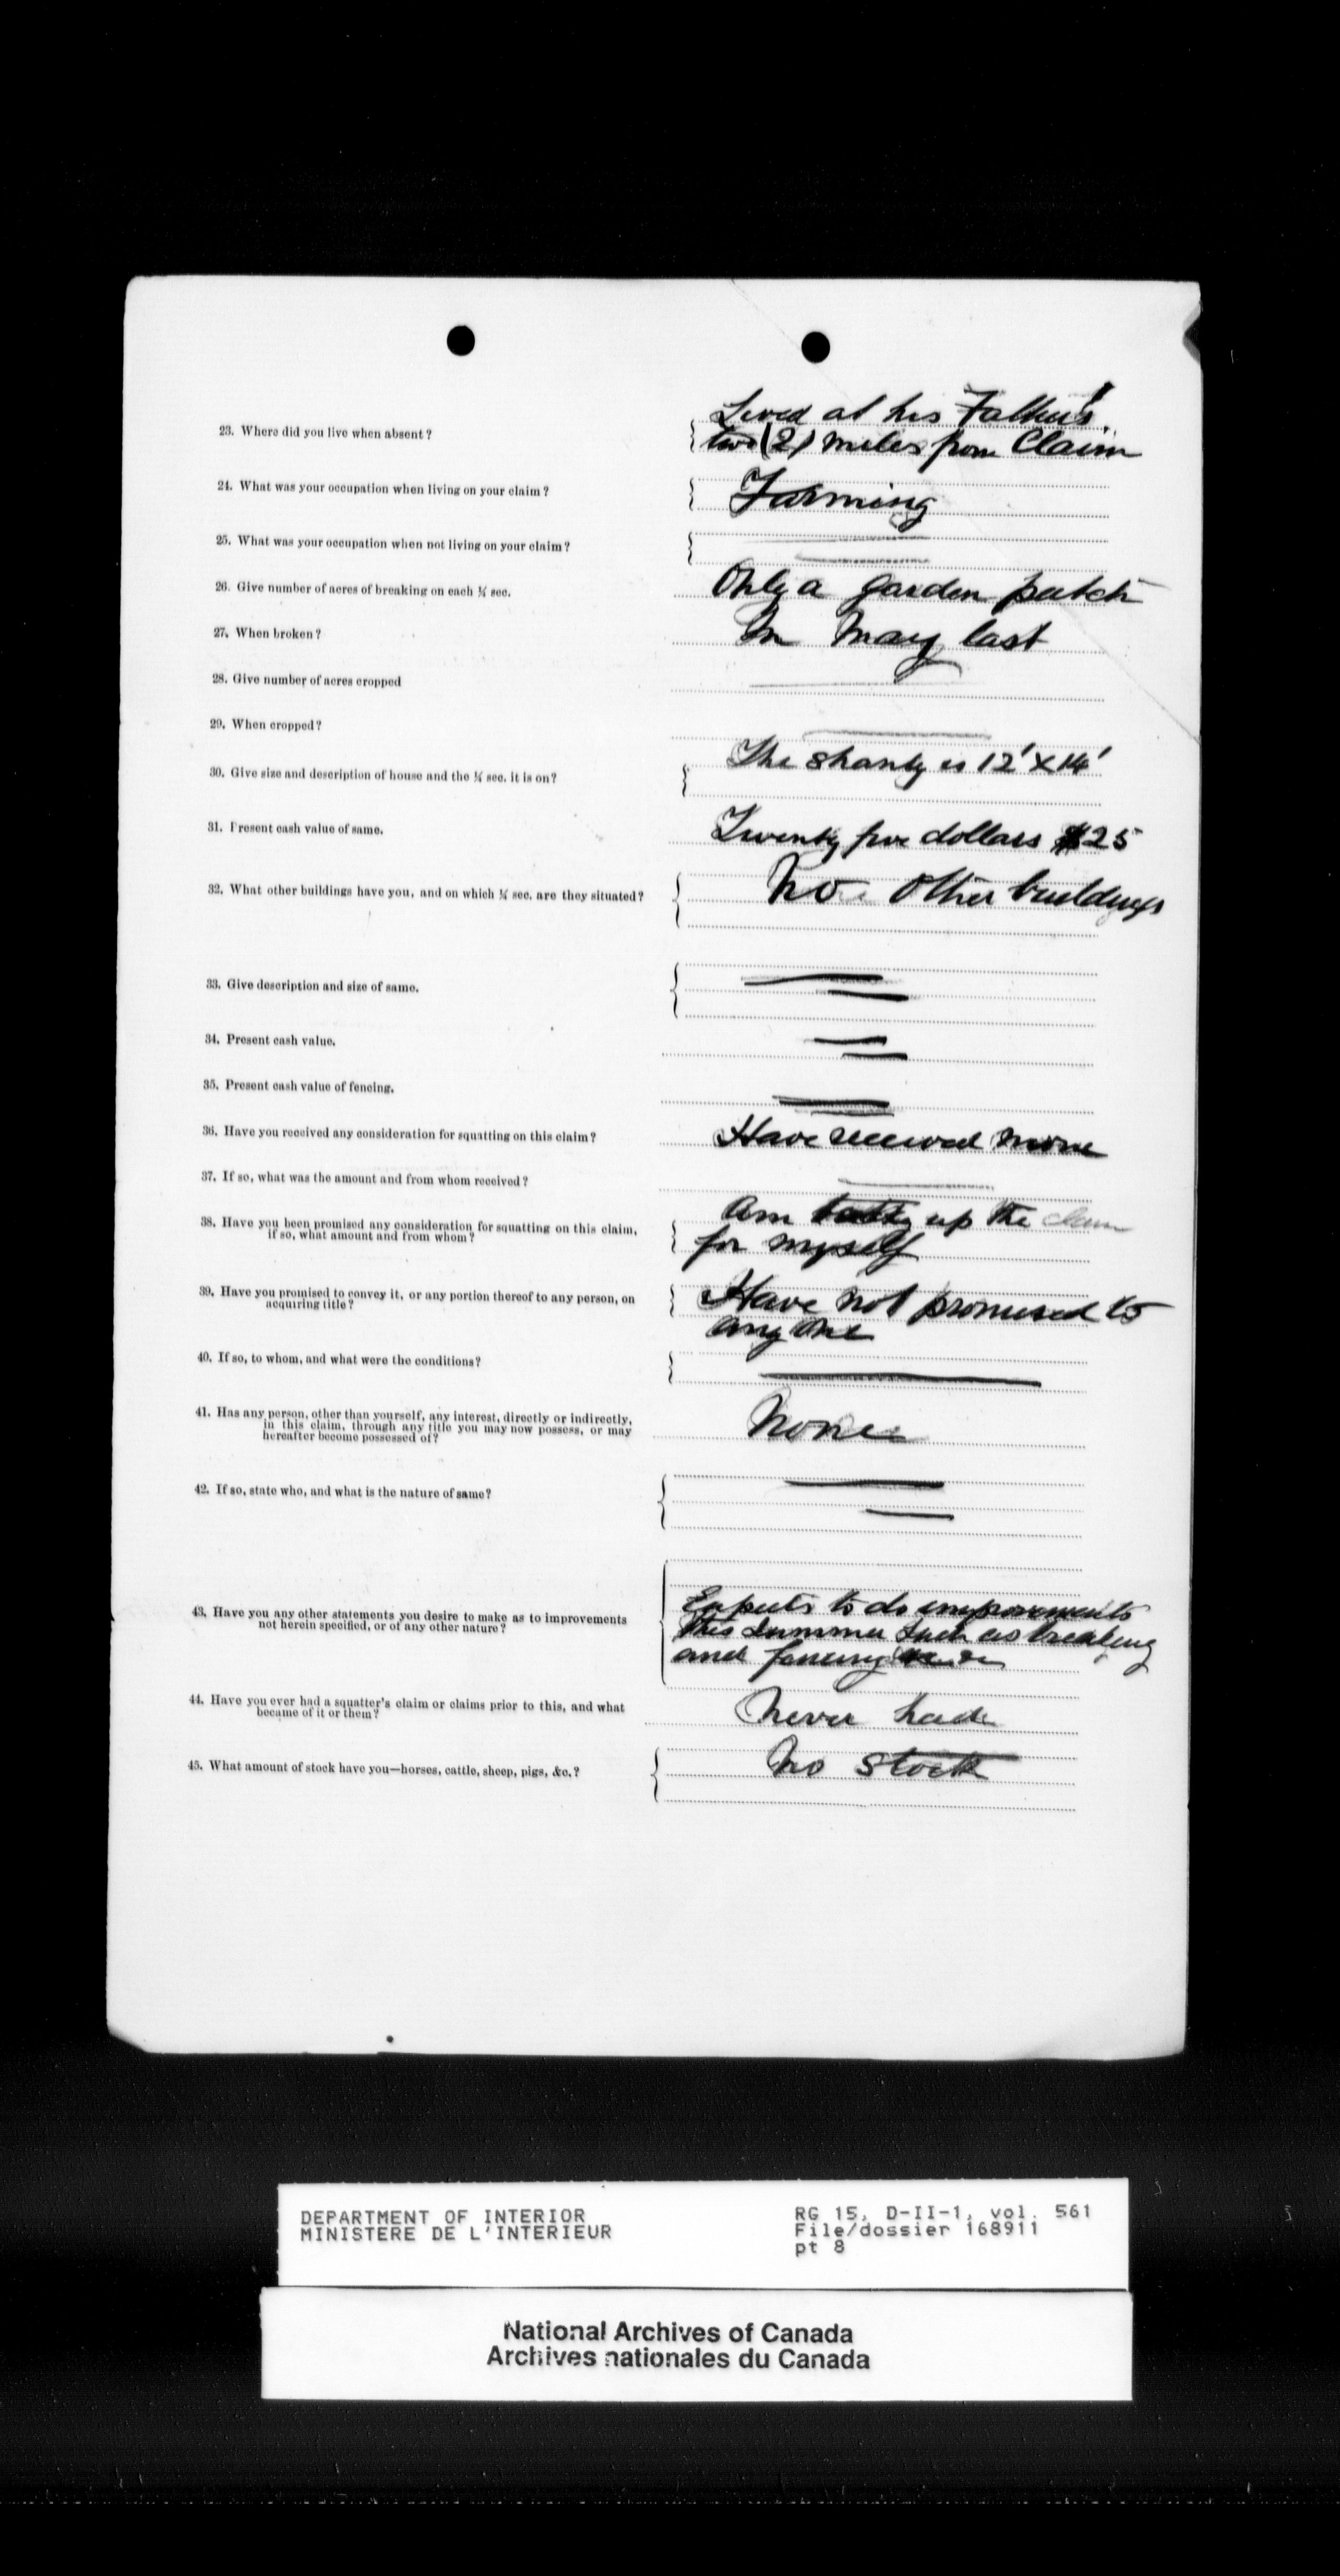 23. Where did you live when absent?
Lived at his Father's
two (2) miles from Claim
24. What was your occupation when living on your claim?
Farming
25. What was your occupation when not living on your claim?
26. Give number of acres of breaking on each ¼ sec.
Only a garden patch
27. When broken?
In May last
28. Give number of acres cropped
29. When cropped?
30. Give size and description of house and the ¼ sec. it is on?
The shanty is 12' x 14'
31. Present cash value of same.
Twenty five dollars $25
32. What other buildings have you, and on which ¼ sec. are they situated?
No other buildings
33. Give description and size of same.
34. Present cash value.
35. Present cash value of fencing.
36. Have you received any consideration for squatting on this claim?
Have received none
37. If so, what was the amount and from whom received?
38. Have you been promised any consideration for squatting on this claim,
if so, what amount and from whom?
Am up the claim
for myself
39. Have you promised to convey it, or any portion thereof to any person, on
acquiring title?
Have not promised to
any one
40. If so, to whom, and what were the conditions?
41. Has any person, other than yourself, any interest, directly or indirectly,
in this claim, through any title you may now possess, or may
hereafter become possessed of?
None
42. If so, state who, and what is the nature of same?
43. Have you any other statements you desire to make as to improvements
not herein specified, or of any other nature?
Expects to do improvements
this summer such as breaking
and fencing
44. Have you ever had a squatter's claim or claims prior to this, and what
became of it or them?
Never had
45. What amount of stock have you—horses, cattle, sheep, pigs, &c.?
No stock
DEPARTMENT OF INTERIOR
MINISTERE DE L'INTERIEUR
RG 15, D-II-1, vol. 561
File/dossier 168911
pt 8
National Archives of Canada
Archives nationales du Canada